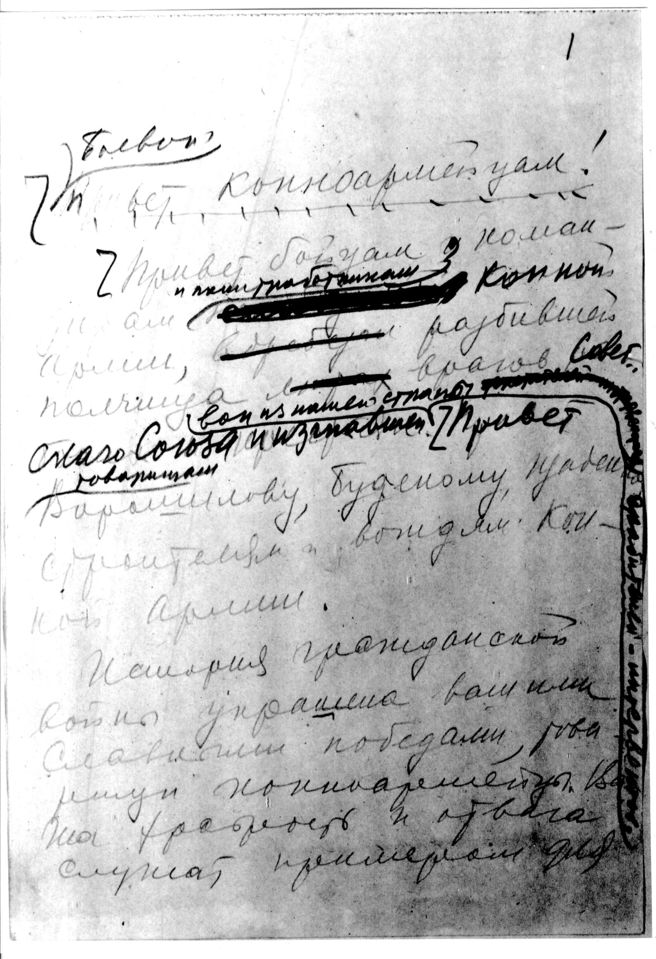 1
Боевой
Привет конноармейцам!
Привет бойцам и коман-
и политработникам
Конной
Армии, разбившей
полчища врагов Совет-
вон из нашей страны
ского Союза и изгнавшей Привет
товарищам
Ворошилову, Буденому,
строителям и вождям Кон-
ной Армии.
История гражданской
войны украшена вашими
славными победами, това-
рищи конноармейцы. Ва-
ша храбрость и отвага
служат примером для
интервентов.